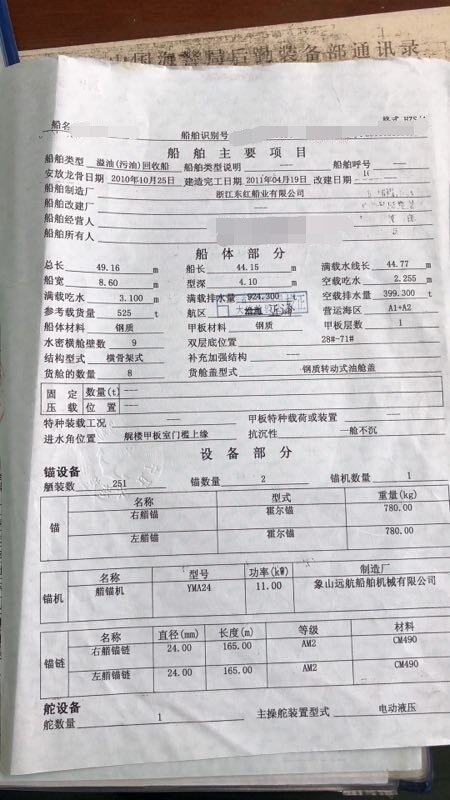 中国海警局后勤装备部通讯录
船名
船舶识别号
船舶主要项目
船舶类型 溢油(污油)回收船 船舶类型说明 —— 船舶呼号
安放龙骨日期 2010年10月25日 建造完工日期 2011年04月19日 改建日期
船舶制造厂 浙江东红船业有限公司
船舶改建厂
船舶经营人
船舶所有人
船体部分
总长 49.16 m 船长 44.15 m 满载水线长 44.77 m
船宽 8.60 m 型深 4.10 m 空载吃水 2.255 m
满载吃水 3.100 m 满载排水量 924.300 t 空载排水量 399.300 t
参考载货量 525 t 航区 近海 营运海区 A1+A2
船体材料 钢质 甲板材料 钢质 甲板层数 1
水密横舱壁数 9 双层底位置 28#-71#
结构型式 横骨架式 补充加强结构 ——
货舱的数量 8 货舱盖型式 钢质转动式油舱盖
固定压载 数量(t) ——
位置 ——
特种装载工况 —— 甲板特种载荷或装置 ——
进水角位置 艉楼甲板室门槛上缘 抗沉性 一舱不沉
设备部分
锚设备
舾装数 251 锚数量 2 锚机数量 1
锚 名称 型式 重量(kg)
右艏锚 霍尔锚 780.00
左艏锚 霍尔锚 780.00
锚机 名称 型号 功率(kW) 制造厂
艏锚机 YMA24 11.00 象山远航船舶机械有限公司
锚链 名称 直径(mm) 长度(m) 等级 材料
右艏锚链 24.00 165.00 AM2 CM490
左艏锚链 24.00 165.00 AM2 CM490
舵设备
舵数量 1 主操舵装置型式 电动液压